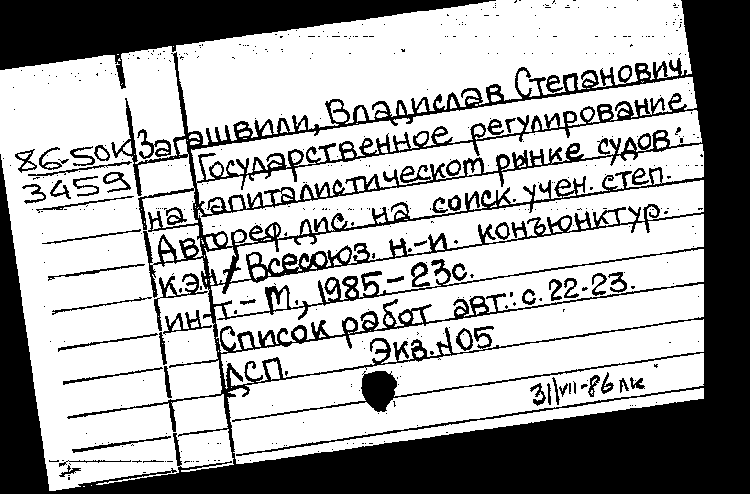 86-50к Загашвили, Владислав Степанович.
3459 Государственное регулирование
на капиталистическом рынке судов:
Автореф. дис. на соиск. учен. степ.
к.эн. / Всесоюз. н.-и. конъюнктур.
ин-т. - М., 1985. - 23с.
Список работ авт.: с. 22-23.
ДСП. Экз.N05.
31/VII-86 лк